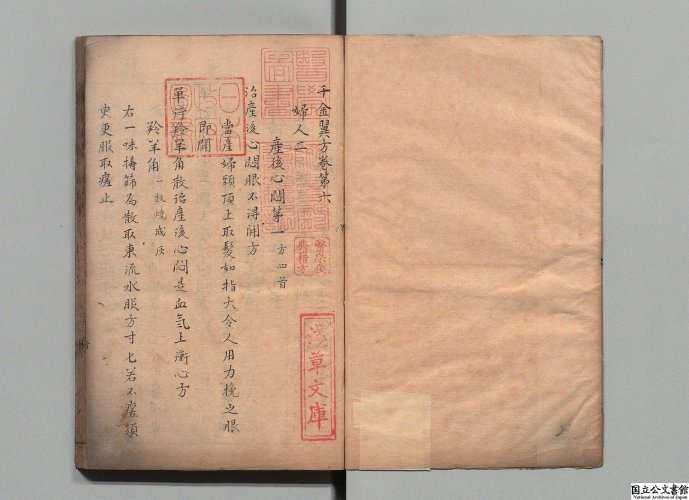 千金翼方卷第六
婦人二
産後心悶第一 方四首
治産後心悶眼不得開方
當産婦頭頂上取髮如指大令人用力挽之眼
即開
單行羚羊角散治産後心悶是血氣上衝心方
羚羊角 一枚燒成灰
右一味擣篩為散取東流水服方寸匕若不瘥須
臾更服取瘥止
淺草文庫
国立公文書館
National Archives of Japan